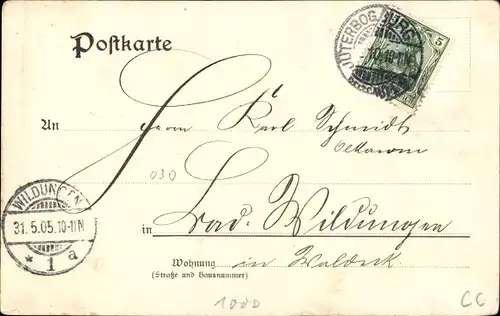 Postkarte
JÜTERBOG
5
An Herrn Karl Schmidt
WILDUNGEN
31.5.05.10-11N
* 1 a
030
in Bad Wildungen
Wohnung in Waldeck
(Straße und Hausnummer)
1000
CC